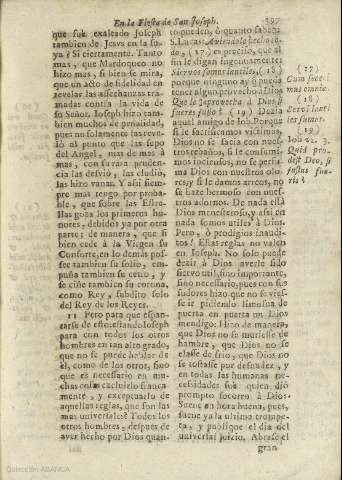 En la Fiesta de San Joseph. 397
que fuè exaleado Joseph
tambien de Jesvs en la su-
ya? Si ciertamente. Tanto
mas, que Mardoqueo no
hizo mas, si bien se mira,
que un acto de fidelidad en
revelar las assechanças tra-
madas contra la vida de
su Señor. Joseph hizo tam-
bien muchos de penalidad,
pues no solamente las reve-
lò al punto que las supo
del Angel, mas de mas à
mas, con su rara prudencia
las desviò, las eludiò,
las hizo vanas. Y assi siem-
pre mas tengo por proba-
ble, que sobre las Estre-
llas goza los primeros ho-
nores, debidos ya por otra
parte; de manera, que si
bien cede à la Virgen su
Consorte, en lo demàs pos-
see tambien su solio, em-
puña tambien su cetro, y
se ciñe tambien su corona,
como Rey, subdito solo
del Rey de los Reyes.
11 Pero para que espan-
tarse de esto? estando Joseph
para con todos los otros
hombres en tan alto grado,
que no se puede hablar de
èl, como de los otros, sino
que es necessario en mu-
chas cosas excluirlo franca-
mente, y exceptuarlo de
aquellas reglas, que son las
mas universales? Todos los
otros hombres, despues de
aver hecho por Dios quan-
to pueden, ò quanto saben
S. Lucas: Aviendolo hecho to-
do, (17) es preciso, que al
fin le digan ingenuamente:
Siervos somos inutiles, (18)
porque ninguno ay q pueda
tener alguna provecho à Dios
Que le aprovecha à Dios si
fueres justo? (19) Dezia
aquel amigo de Job. Porque
si le sacrificamos victimas,
Dios no se sacia con nues-
tros rebaños, si le consumi-
mos inciensos, no se perfu-
ma Dios con nuestros olo-
res; y si le damos arreos, no
se haze hermoso con nues-
tros adornos. De nada està
Dios menesteroso, y assi en
nada somos utiles à Dios.
Pero, ò prodigios inaudi-
tos! Essas reglas no valen
en Joseph. No solo puede
dezir à Dios averle sido
siervo util, sino importante,
sino necessario, pues con sus
sudores hizo que no se vies-
se ir pidiendo limosna de
puerta en puerta un Dios
mendigo: Hizo de manera,
que Dios no se muriesse de
hambre, que Dios no se
elasse de frio, que Dios no
se cobasse por desnudez, y
en todas las humanas ne-
cessidades fue quien diò
prompto socorro à Dios:
Suene en hora buena, pues,
sacie ya la ultima trompe-
ta, y publique el dia del
universal juicio. Abrase el
gran
(17)
(18)
(19)
Job 22. 3.
Quid pro-
dest Deo, si
justus fue-
ris?
Colección ABANCA